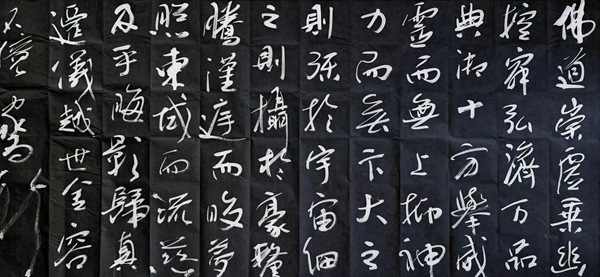 佛道崇虛乘幽
控寂弘濟万品
典御十方舉威
靈而無上抑神
力而無下大之
則彌於宇宙細
之則攝於豪釐
騰漢庭而皎夢
照東域而流慈
及乎晦影歸真
遷儀越世金容